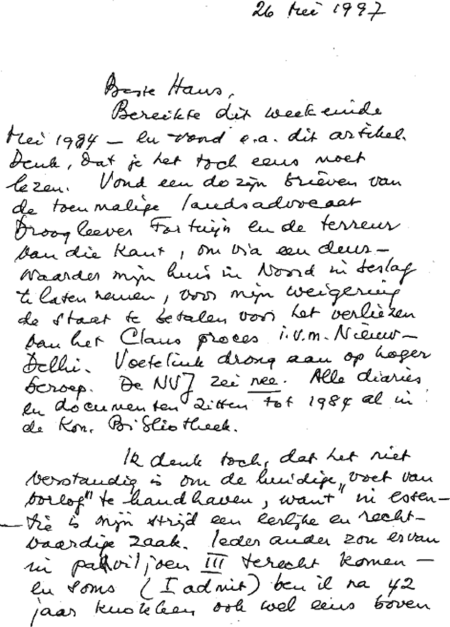 26 Mei 1997
Beste Hans,
Bereikte dit weekeinde
Mei 1984 – en vond e.a. dit artikel.
Denk, dat je het toch eens moet
lezen. Vond een dozijn brieven van
de toenmalige landsadvocaat
Droogleever Fortuijn en de terreur
van die kant, om via een deur-
waarder mijn huis in Noord in beslag
te laten nemen, voor mijn weigering
de Staat te betalen voor het verliezen
van het Claus proces i.v.m. Nieuw-
Delhi. Voetelink drong aan op hoger
beroep. De NVJ zei nee. Alle diaries
en documenten zitten tot 1984 al in
de Kon. Bibliotheek.
Ik denk toch, dat het niet
verstandig is om de huidige „voet van
oorlog" te handhaven, want in essen-
tie is mijn strijd een eerlijke en recht-
vaardige zaak. Ieder ander zou ervan
in paviljoen III terecht komen –
en soms (I admit) ben ik na 42
jaar knokken ook wel eens boven